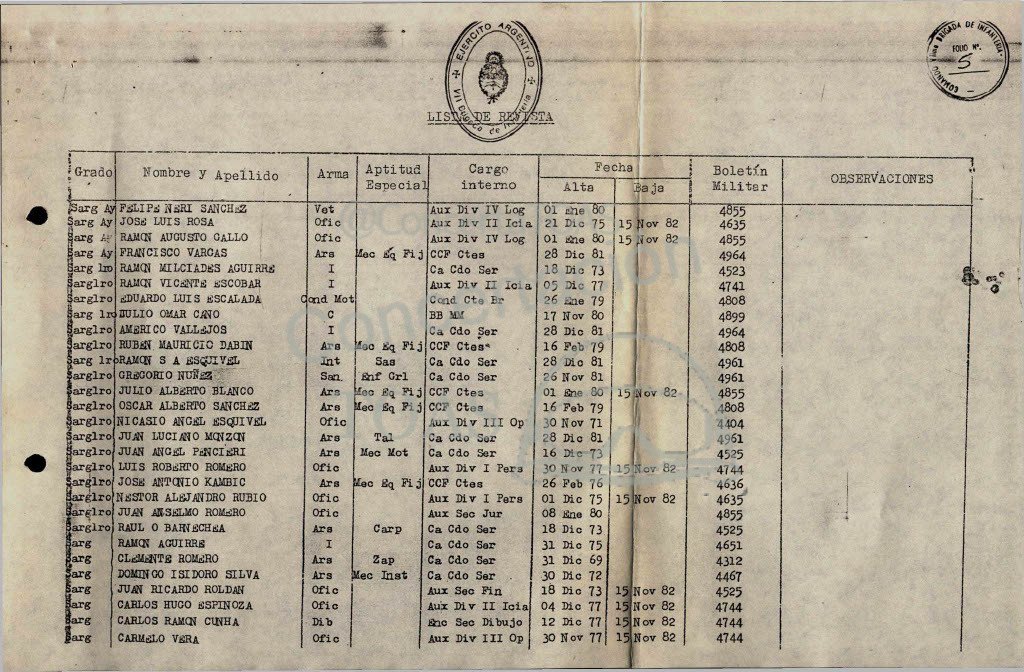 EJERCITO ARGENTINO
VII Brigada de Infantería
LISTA DE REVISTA
COMANDO VIIma BRIGADA DE INFANTERIA
FOLIO Nº.
5
Grado Nombre y Apellido Arma Aptitud Especial Cargo interno Fecha Alta Baja Boletín Militar OBSERVACIONES
Sarg Ay FELIPE NERI SANCHEZ Vet Aux Div IV Log 01 Ene 80 4855
Sarg Ay JOSE LUIS ROSA Ofic Aux Div II Icia 21 Dic 75 15 Nov 82 4635
Sarg Ay RAMON AUGUSTO GALLO Ofic Aux Div IV Log 01 Ene 80 15 Nov 82 4855
Sarg Ay FRANCISCO VARGAS Ars Mec Eq Fij CCF Ctes 28 Dic 81 4964
Sarg 1ro RAMON MILCIADES AGUIRRE I Ca Cdo Ser 18 Dic 73 4523
Sarg1ro RAMON VICENTE ESCOBAR I Aux Div II Icia 05 Dic 77 4741
Sarg1ro EDUARDO LUIS ESCALADA Cond Mot Cond Cte Br 26 Ene 79 4808
Sarg 1ro JULIO OMAR CANO C BB MM 17 Nov 80 4899
Sarg1ro AMERICO VALLEJOS I Ca Cdo Ser 28 Dic 81 4964
Sarg1ro RUBEN MAURICIC DABIN Ars Mec Eq Fij CCF Ctes 16 Feb 79 4808
Sarg 1ro RAMON S A ESQUIVEL Int Sas Ca Cdo Ser 28 Dic 81 4961
Sarg1ro GREGORIO NUÑEZ San. Enf Grl Ca Cdo Ser 26 Nov 81 4961
Sarg1ro JULIO ALBERTO BLANCO Ars Mec Eq Fij CCF Ctes 01 Ene 80 15 Nov 82 4855
Sarg1ro OSCAR ALBERTO SANCHEZ Ars Mec Eq Fij CCF Ctes 16 Feb 79 4808
Sarg1ro NICASIO ANGEL ESQUIVEL Ofic Aux Div III Op 30 Nov 71 4404
Sarg1ro JUAN LUCIANO MONZON Ars Tal Ca Cdo Ser 28 Dic 81 4961
Sarg1ro JUAN ANGEL PENCIERI Ars Mec Mot Ca Cdo Ser 16 Dic 73 4525
Sarg1ro LUIS ROBERTO ROMERO Ofic Aux Div I Pers 30 Nov 77 15 Nov 82 4744
Sarg1ro JOSE ANTONIO KAMBIC Ars Mec Eq Fij CCF Ctes 26 Feb 76 4636
Sarg1ro NESTOR ALEJANDRO RUBIO Ofic Aux Div I Pers 01 Dic 75 15 Nov 82 4635
Sarg1ro JUAN ANSELMO ROMERO Ofic Aux Sec Jur 08 Ene 80 4855
Sarg1ro RAUL O BARNECHEA Ars Carp Ca Cdo Ser 18 Dic 73 4525
Sarg RAMON AGUIRRE I Ca Cdo Ser 31 Dic 75 4651
Sarg CLEMENTE ROMERO Ars Zap Ca Cdo Ser 31 Dic 69 4312
Sarg DOMINGO ISIDORO SILVA Ars Mec Inst Ca Cdo Ser 30 Dic 72 4467
Sarg JUAN RICARDO ROLDAN Ofic Aux Sec Fin 18 Dic 73 15 Nov 82 4525
Sarg CARLOS HUGO ESPINOZA Ofic Aux Div II Icia 04 Dic 77 15 Nov 82 4744
Sarg CARLOS RAMON CUNHA Dib Enc Sec Dibujo 12 Dic 77 15 Nov 82 4744
Sarg CARMELO VERA Ofic Aux Div III Op 30 Nov 77 15 Nov 82 4744